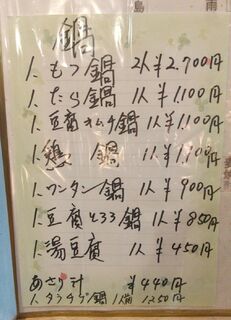 島 雨
鍋
1. もつ鍋 2人 ¥2,700円
1. たら鍋 1人 ¥1,100円
1. 豆腐キムチ鍋 1人 ¥1,100円
1. 鶏 鍋 1人 ¥1,100円
1. ワンタン鍋 1人 ¥900円
1. 豆腐とろろ鍋 1人 ¥850円
1. 湯豆腐 1人 ¥450円
あさり汁 ¥440円
1. タラチゲ鍋 1人前 1,250円